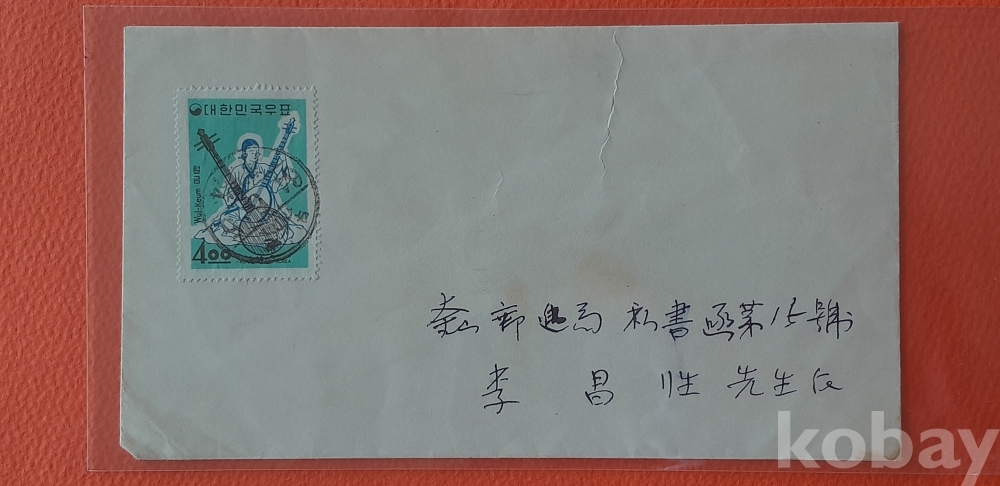 대한민국우표
월금
Wul-Keum
4.00
郵遞局 私書函第15號
李昌性 先生
kobay